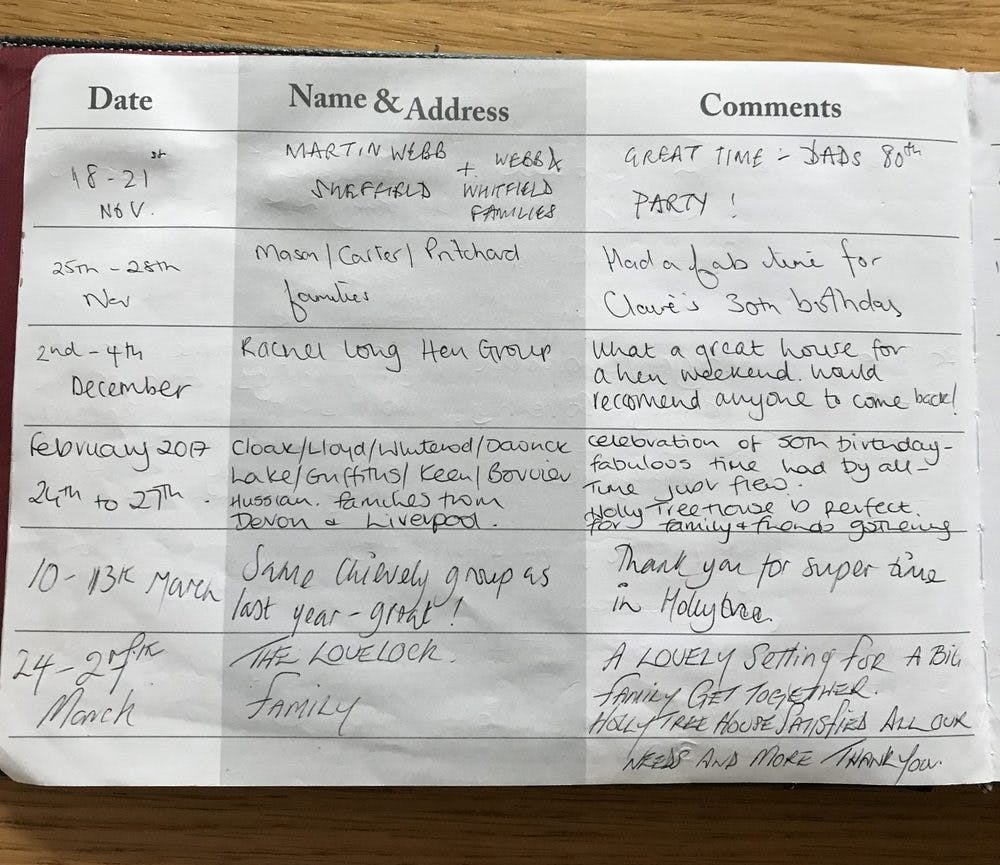 Date Name & Address Comments
18-21st
NOV.
MARTIN WEBB
SHEFFIELD
+ WEBB &
WHITFIELD
FAMILIES
GREAT TIME - DADS 80th
PARTY !
25th - 28th
Nov
Mason/Carter/Pritchard
families
Had a fab time for
Claire's 30th birthday
2nd - 4th
December
Rachel Long Hen Group
What a great house for
a hen weekend. Would
recomend anyone to come back!
February 2017
24th to 27th.
Cloak/Lloyd/
Lake/Griffiths/Keen/
families from
Devon & Liverpool.
Celebration of 50th birthday-
fabulous time had by all-
Time just flew.
Holly Tree House is perfect.
for family & friends gathering
10-13th March
Same Chievely group as
last year - great!
Thank you for super time
in Hollytree.
24 -
March
THE LOVELOCK.
FAMILY
A LOVELY Setting for A BIG
FAMILY GET TOGETHER.
HOLLY TREE HOUSE SATISFIED ALL OUR
NEEDS AND MORE THANK YOU.